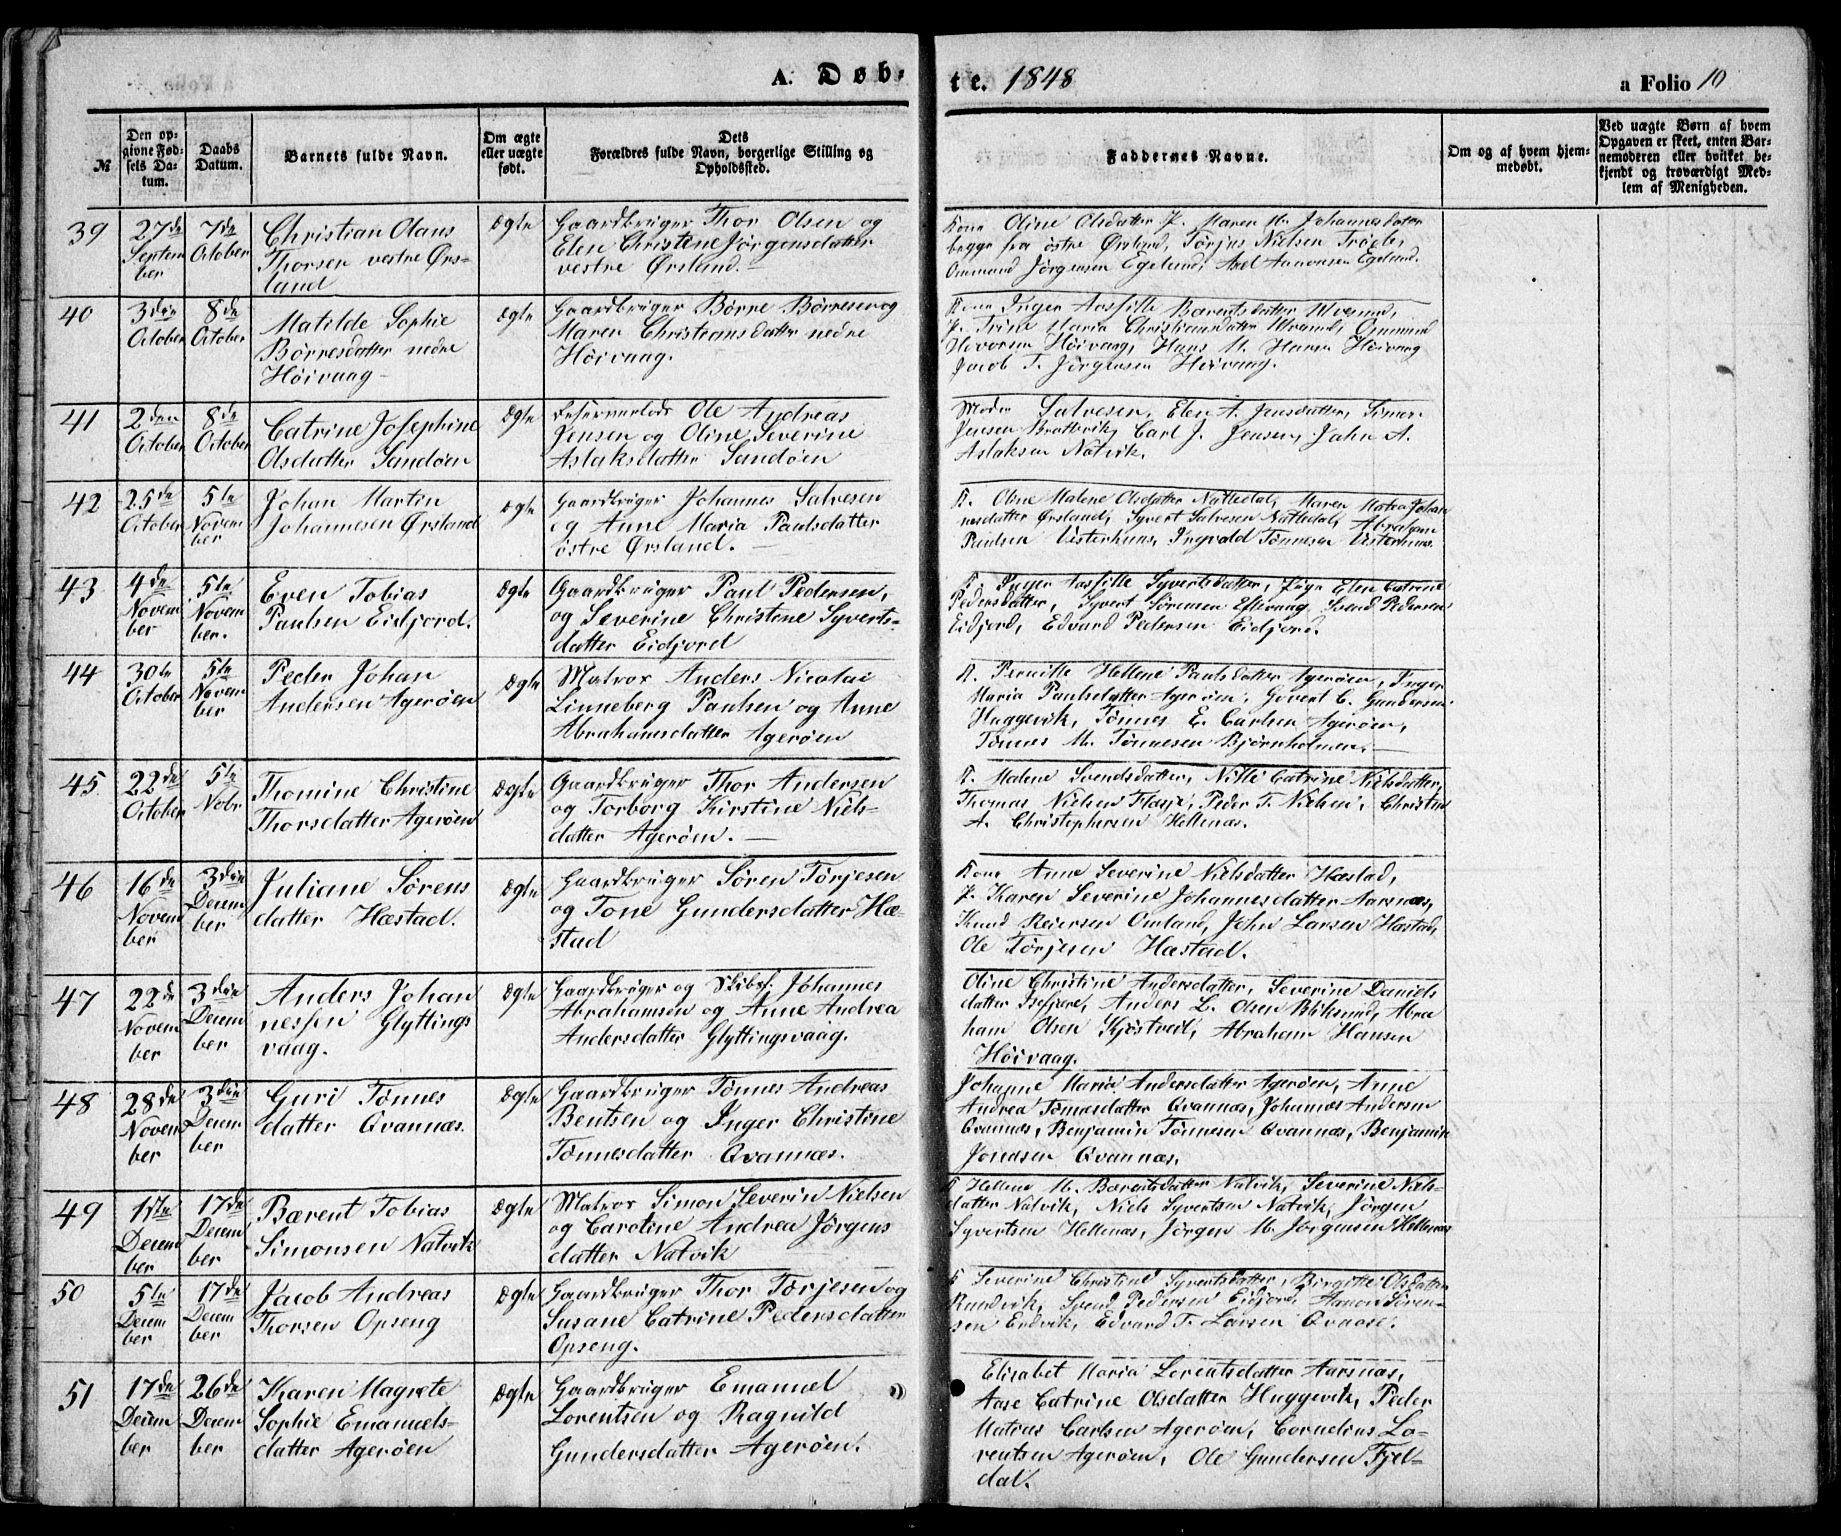 A. Døb-
te. 1848
a Folio 10
№
Den op-
givne Fød-
sels Da-
tum.
Daabs
Datum.
Barnets fulde Navn.
Om ægte
eller uægte
født.
Dets
Forældres fulde Navn, borgerlige Stilling og
Opholdssted.
Faddernes Navne.
Om og af hvem hjem-
medøbt.
Ved uægte Børn af hvem
Opgaven er skeet, enten Bar-
nemoderen eller hvilket be-
kjendt og troværdigt Med-
lem af Menigheden.
39
27de
Septem
ber
7de
October
Christian Olaus
Thorsen vestre Ørs-
land
Ægte
Gaardbruger Thor Olsen og
Elen Christine Jørgensdatter
vestre Ørsland.
Kone Oline Olsdatter P. Maren M. Johannesdatter
begge fra østre Ørsland, Torjus Nielsen
Ommund Jørgensen Egeland, Axel Aanonsen Egeland.
40
3die
October
8de
October
Matilde Sophie
Børresdatter nedre
Høivaag
Ægte
Gaardbruger Børre Børresen og
Maren Christiansdatter nedre
Høivaag.
Kone Inger Barentsdatter
P. Trine Maria Christiansdatter Ommund
Høivaag, Hans M. Hansen Høivaag
Jacob T. Jørgensen Høivaag.
41
2den
October
8de
October
Catrine Josephine
Olsdatter Sandøen
Ægte
Ole Andreas
Jensen og Oline Severine
Aslaksdatter Sandøen
Salvesen, Elen A. Jensdatter, Simon
Jensen Bratterik, Carl J. Jensen, Jahn A.
Aslaksen Natvik.
42
25de
October
5te
Novem
ber
Johan Martin
Johannesen Ørsland
Ægte
Gaardbruger Johannes Salvesen
og Anne Maria Paulsdatter
østre Ørsland.
K. Oline Malene Olsdatter Natledal, Maren Johan
nesdatter Ørsland, Syvert Salvesen Natledal, Abraham
Paulsen Vesterhuus, Ingvald Tønnesen Vesterhuus.
43
4de
Novem
ber
5te
Novem
ber.
Even Tobias
Paulsen Eidjord.
Ægte
Gaardbruger Paul Pedersen,
og Severine Christine Syverts-
datter Eidjord
K. Inger Syvertsdatter, Pige Elen Catrine
Pedersdatter, Syvert Sørensen Svend Pedersen
Eidjord, Edvard Pedersen Eidjord.
44
30te
October
5te
Novem
ber
Peder Johan
Andersen Agerøen
Ægte
Matros Anders Nicolai
Linneberg Paulsen og Anne
Abrahamsdatter Agerøen
K. Pernille Hellene Paulsdatter Agerøen, Inger
Maria Paulsdatter Agerøen, Govert C. Gundersen
Huggevik, Tønnes E. Carlsen Agerøen,
Tønnes M. Tønnesen Bjørnholmen.
45
22de
October
5te
Nobr
Thomine Christine
Thorsdatter Agerøen
Ægte
Gaardbruger Thor Andersen
og Torborg Kirstine Niels-
datter Agerøen.
K. Malene Svendsdatter, Nille Catrine Nielsdatter,
Thomas Nielsen Peder T. Nielsen, Christen
A. Christophersen Hellenæs.
46
16de
Novem
ber
3die
Decem
ber
Juliane Sørens
datter Hæstad.
Ægte
Gaardbruger Søren Tørjesen
og Tone Gundersdatter Hæ-
stad
Kone Anne Severine Nielsdatter Hæstad,
P. Karen Severine Johannesdatter Aarsnæs,
Knud Reiersen Omland, John Larsen Hæstad,
Ole Tørjesen Hæstad.
47
22de
Novem
ber
3die
Decem
ber
Anders Johan
nessen Glyttings
vaag.
Ægte
Gaardbruger og Skibsf. Johannes
Abrahamsen og Anne Andrea
Andersdatter Glyttingsvaag.
Oline Christine Andersdatter, Severine Daniels
datter Isefjære, Anders L. Olsen Bliksund, Abra
ham Olsen Kjøstveit, Abraham Hansen
Høivaag.
48
28de
Novem
ber
3die
Decem
ber
Guri Tønnes
datter Qvannæs.
Ægte
Gaardbruger Tønnes Andreas
Bentsen og Inger Christine
Tønnesdatter Qvannæs.
Johanne Maria Andersdatter Agerøen, Anne
Andrea Tønnesdatter Qvannæs, Johannes Andersen
Qvannæs, Benjamin Tønnesen Qvannæs, Benjamin
Jonasen Qvannæs.
49
1ste
Decem
ber
17de
Decem
ber
Bærent Tobias
Simonsen Natvik
Ægte
Matros Simon Severin Nielsen
og Caroline Andrea Jørgens
datter Natvik
K Hellene M. Bærentsdatter Natvik, Severine Niels-
datter Natvik, Niels Syvertsen Natvik, Jørgen
Syvertsen Hellenæs, Jørgen M. Jørgensen Hellenæs
50
5te
Decem
ber
17de
Decem
ber
Jacob Andreas
Thorsen Opseng
Ægte
Gaardbruger Thor Tørjesen og
Susane Catrine Pedersdatter
Opseng.
K Severine Christine Syvertsdatter, Birgitte Olsdatter
Rundvik, Svend Pedersen Eidjord, Aanon Søren-
sen Eidvik, Edvard T. Larsen Qvaase.
51
17de
Decem
ber
26de
Decem
ber
Karen Magrete
Sophie Emanuels-
datter Agerøen
Ægte
Gaardbruger Emanuel
Lorentsen og Ragnild
Gundersdatter Agerøen.
Elisabet Maria Lorentsdatter Aarsnæs,
Aase Catrine Olsdatter Huggevik, Peder
Matias Carlsen Agerøen, Cornelius Lo-
rentsen Agerøen, Ole Gundersen Fjel-
dal.